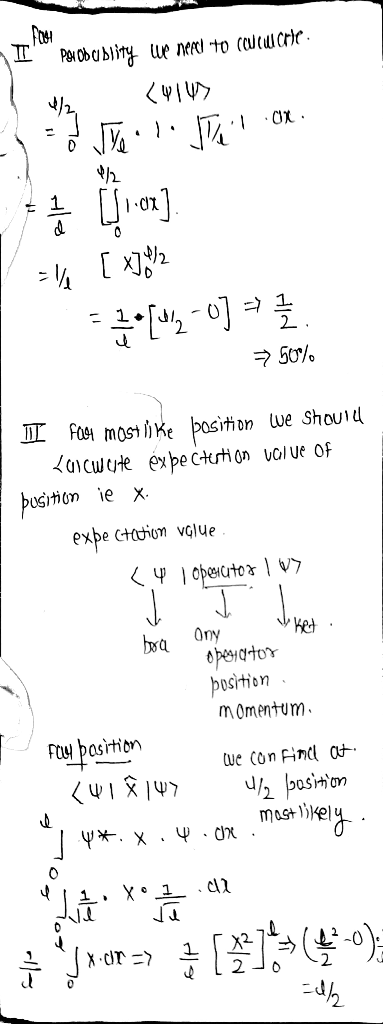 II For Porobability we need to calculate.
<ψ|ψ>
= ∫₀^{l/2} √1/l · 1 · √1/l · 1 · dx.
= 1/l [∫₀^{l/2} 1·dx].
= 1/l [x]₀^{l/2}
= 1/l • [l/2 - 0] ⇒ 1/2.
⇒ 50%
III For most like position we should
calculate expectation value of
position ie x.
expectation value.
<ψ | operator | ψ>
↓ ↓ ↓
bra any ket.
operator
position.
momentum.
For position we can find at.
<ψ| x̂ |ψ> l/2 position
most likely.
∫₀^l ψ*. x . ψ . dx.
∫₀^l 1/√l . x • 1/√l . dx
1/l ∫₀^l x.dx => 1/l [x²/2]₀^l ⇒ (l²/2 - 0)
= l/2